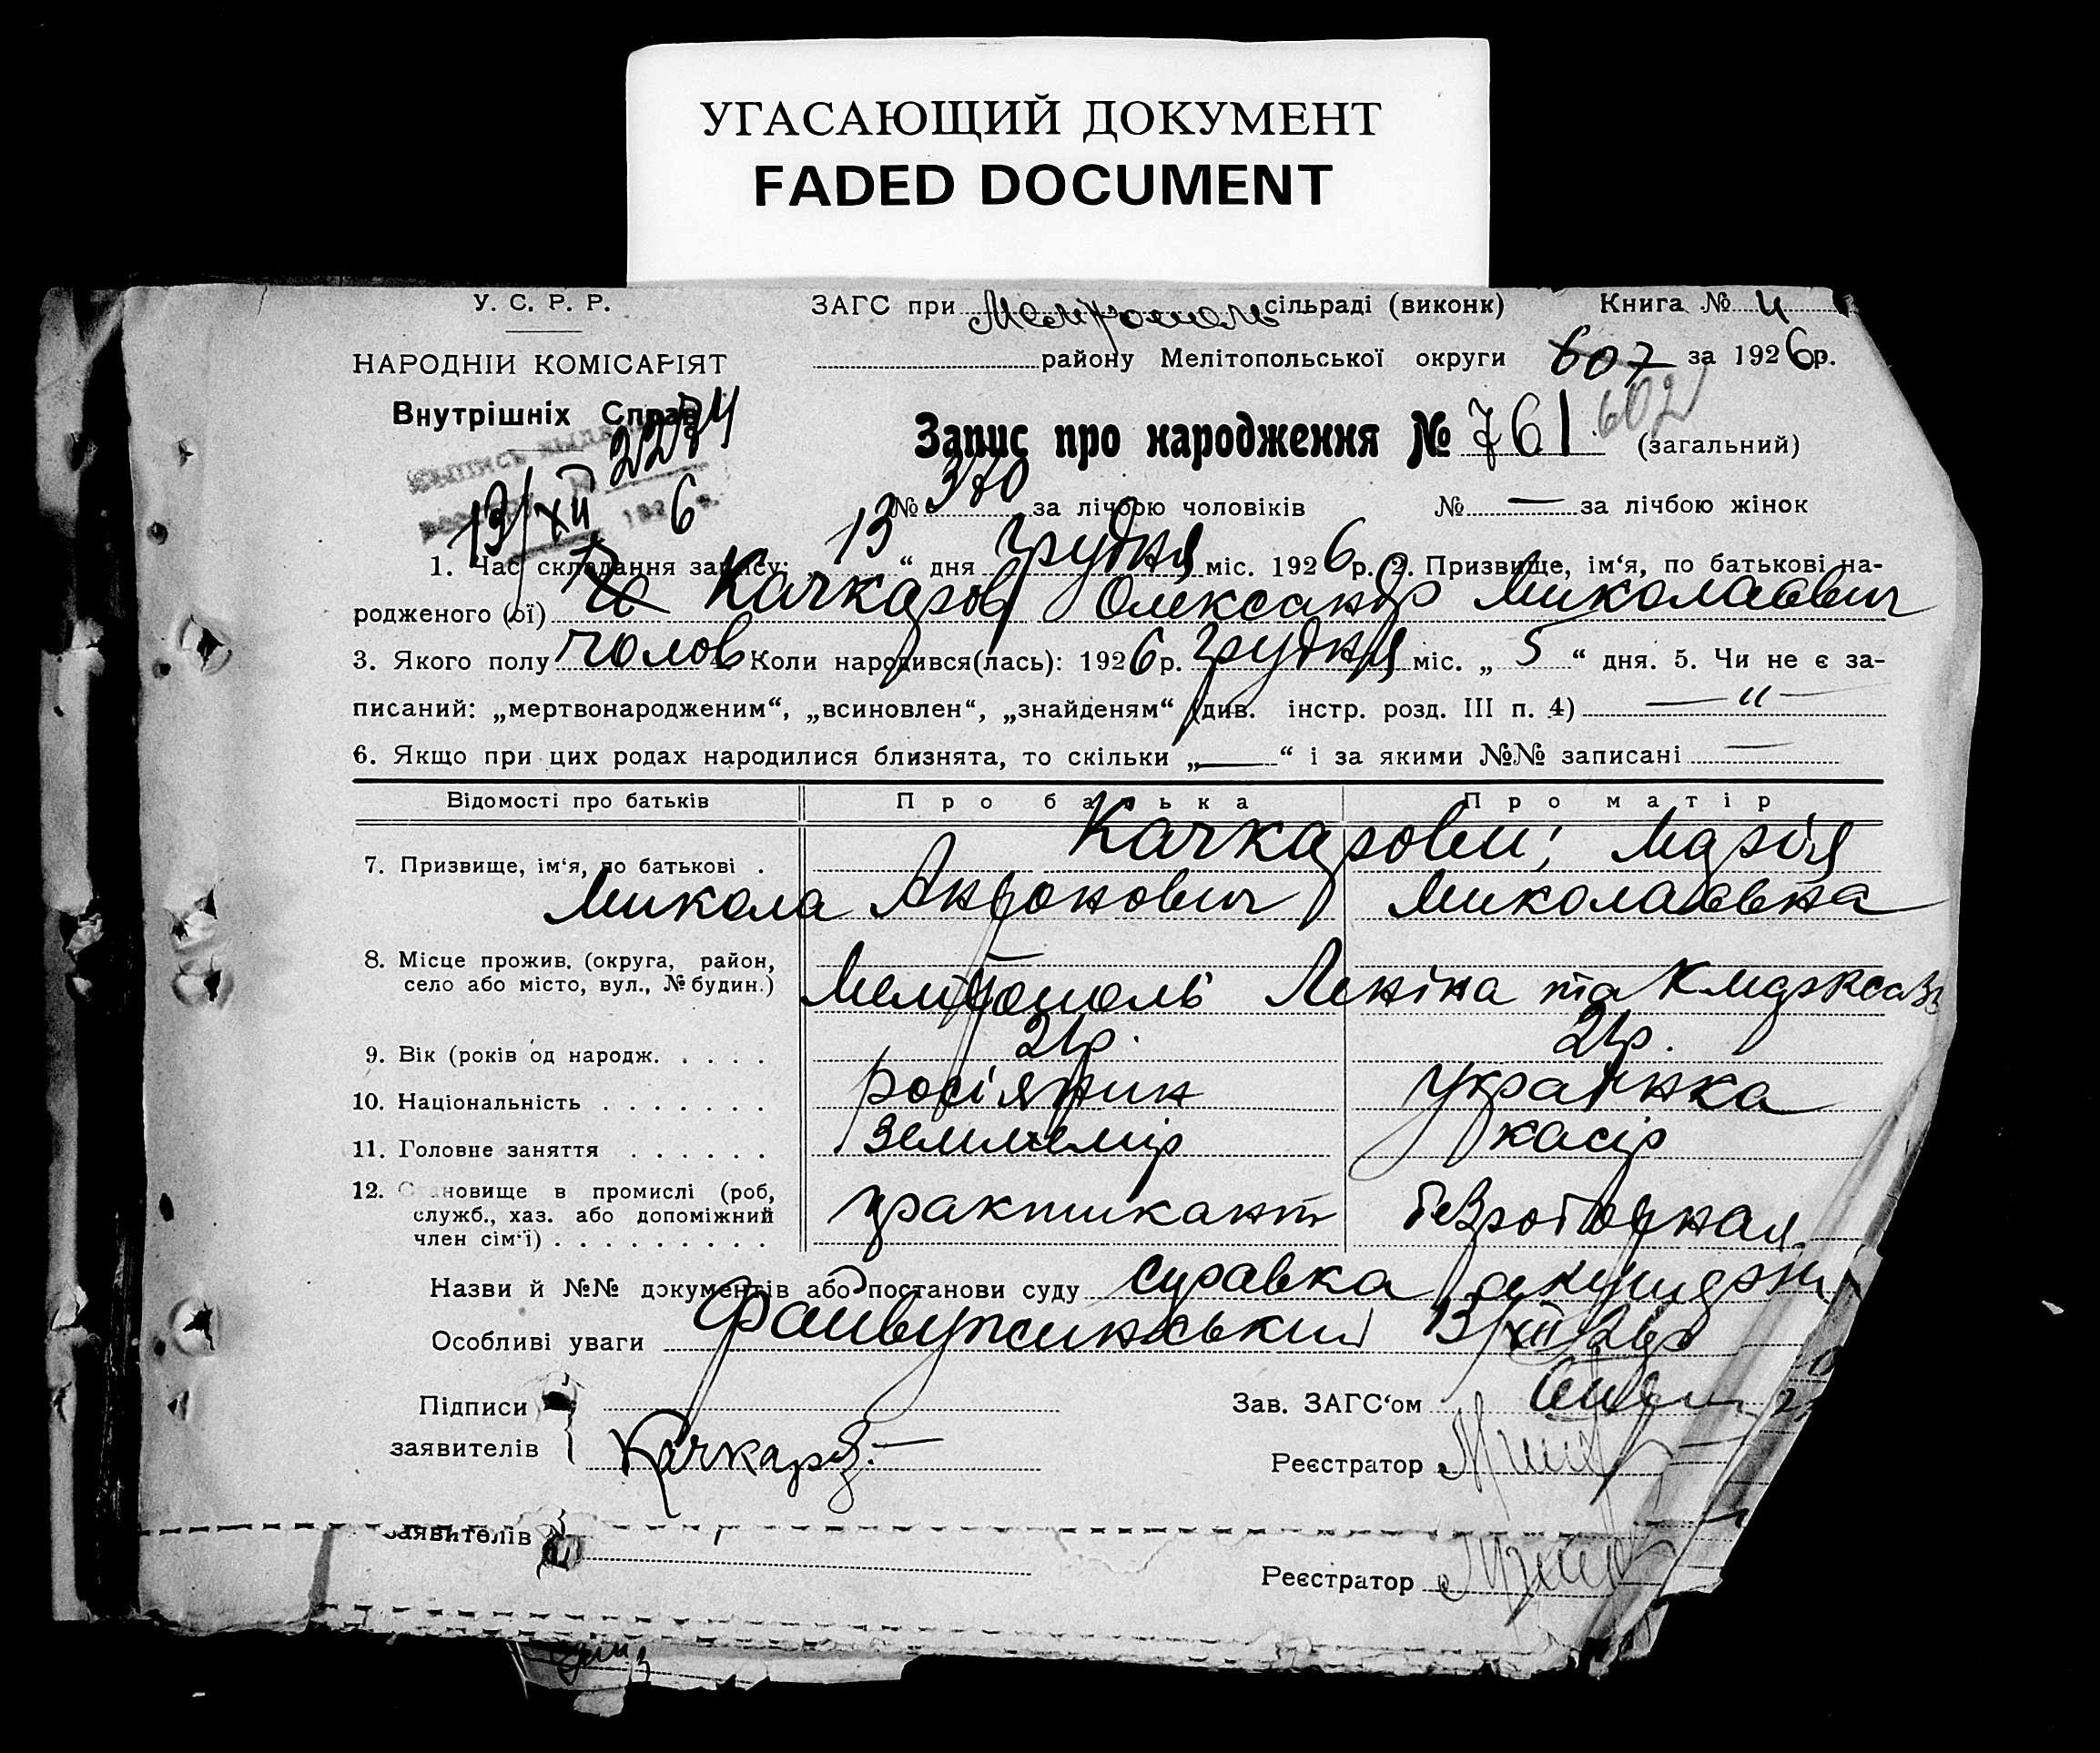 УГАСАЮЩИЙ ДОКУМЕНТ
FADED DOCUMENT
У. С. Р. Р. ЗАГС при Мелітополь сільраді (виконк) Книга № 4
НАРОДНІЙ КОМІСАРІЯТ району Мелітопольської округи 607 за 1926 р.
Внутрішніх Справ 2274 Запис про народження № 761 602 (загальний)
13/XII 1926 № 370 за лічбою чоловіків № — за лічбою жінок
1. Час складання запису: 13 “ дня грудня міс. 1926 р. 2. Призвище, ім‘я, по батькові на-
родженого (ої) Качкаров Олександр Миколаевич
3. Якого полу чолов 4. Коли народився(лась): 1926 р. грудня міс. „ 5 “ дня. 5. Чи не є за-
писаний: „мертвонародженим“, „всиновлен“, „знайденям“ (див. інстр. розд. III п. 4) — " —
6. Якщо при цих родах народилися близнята, то скільки „—“ і за якими №№ записані —
Відомості про батьків Про батька Про матір
Качкарови; Марія
7. Призвище, ім‘я, по батькові .
Микола Антонович Миколаевна
8. Місце прожив. (округа, район,
село або місто, вул., № будин.) Мелітополь Леніна та К Маркса
9. Вік (років од народж. . . . . 21 р. 21 р.
10. Національність . . . . . . . росіянин Українка
11. Головне заняття . . . . . . землемір касір
12. Становище в промислі (роб,
служб., хаз. або допоміжний практикант безроботная
член сім‘ї) . . . . . . . . .
Назви й №№ документів або постанови суду справка акушерки
Особливі уваги 13/XII 26 р
Підписи Зав. ЗАГС‘ом
заявителів Качкаров Реєстратор
заявителів
Реєстратор